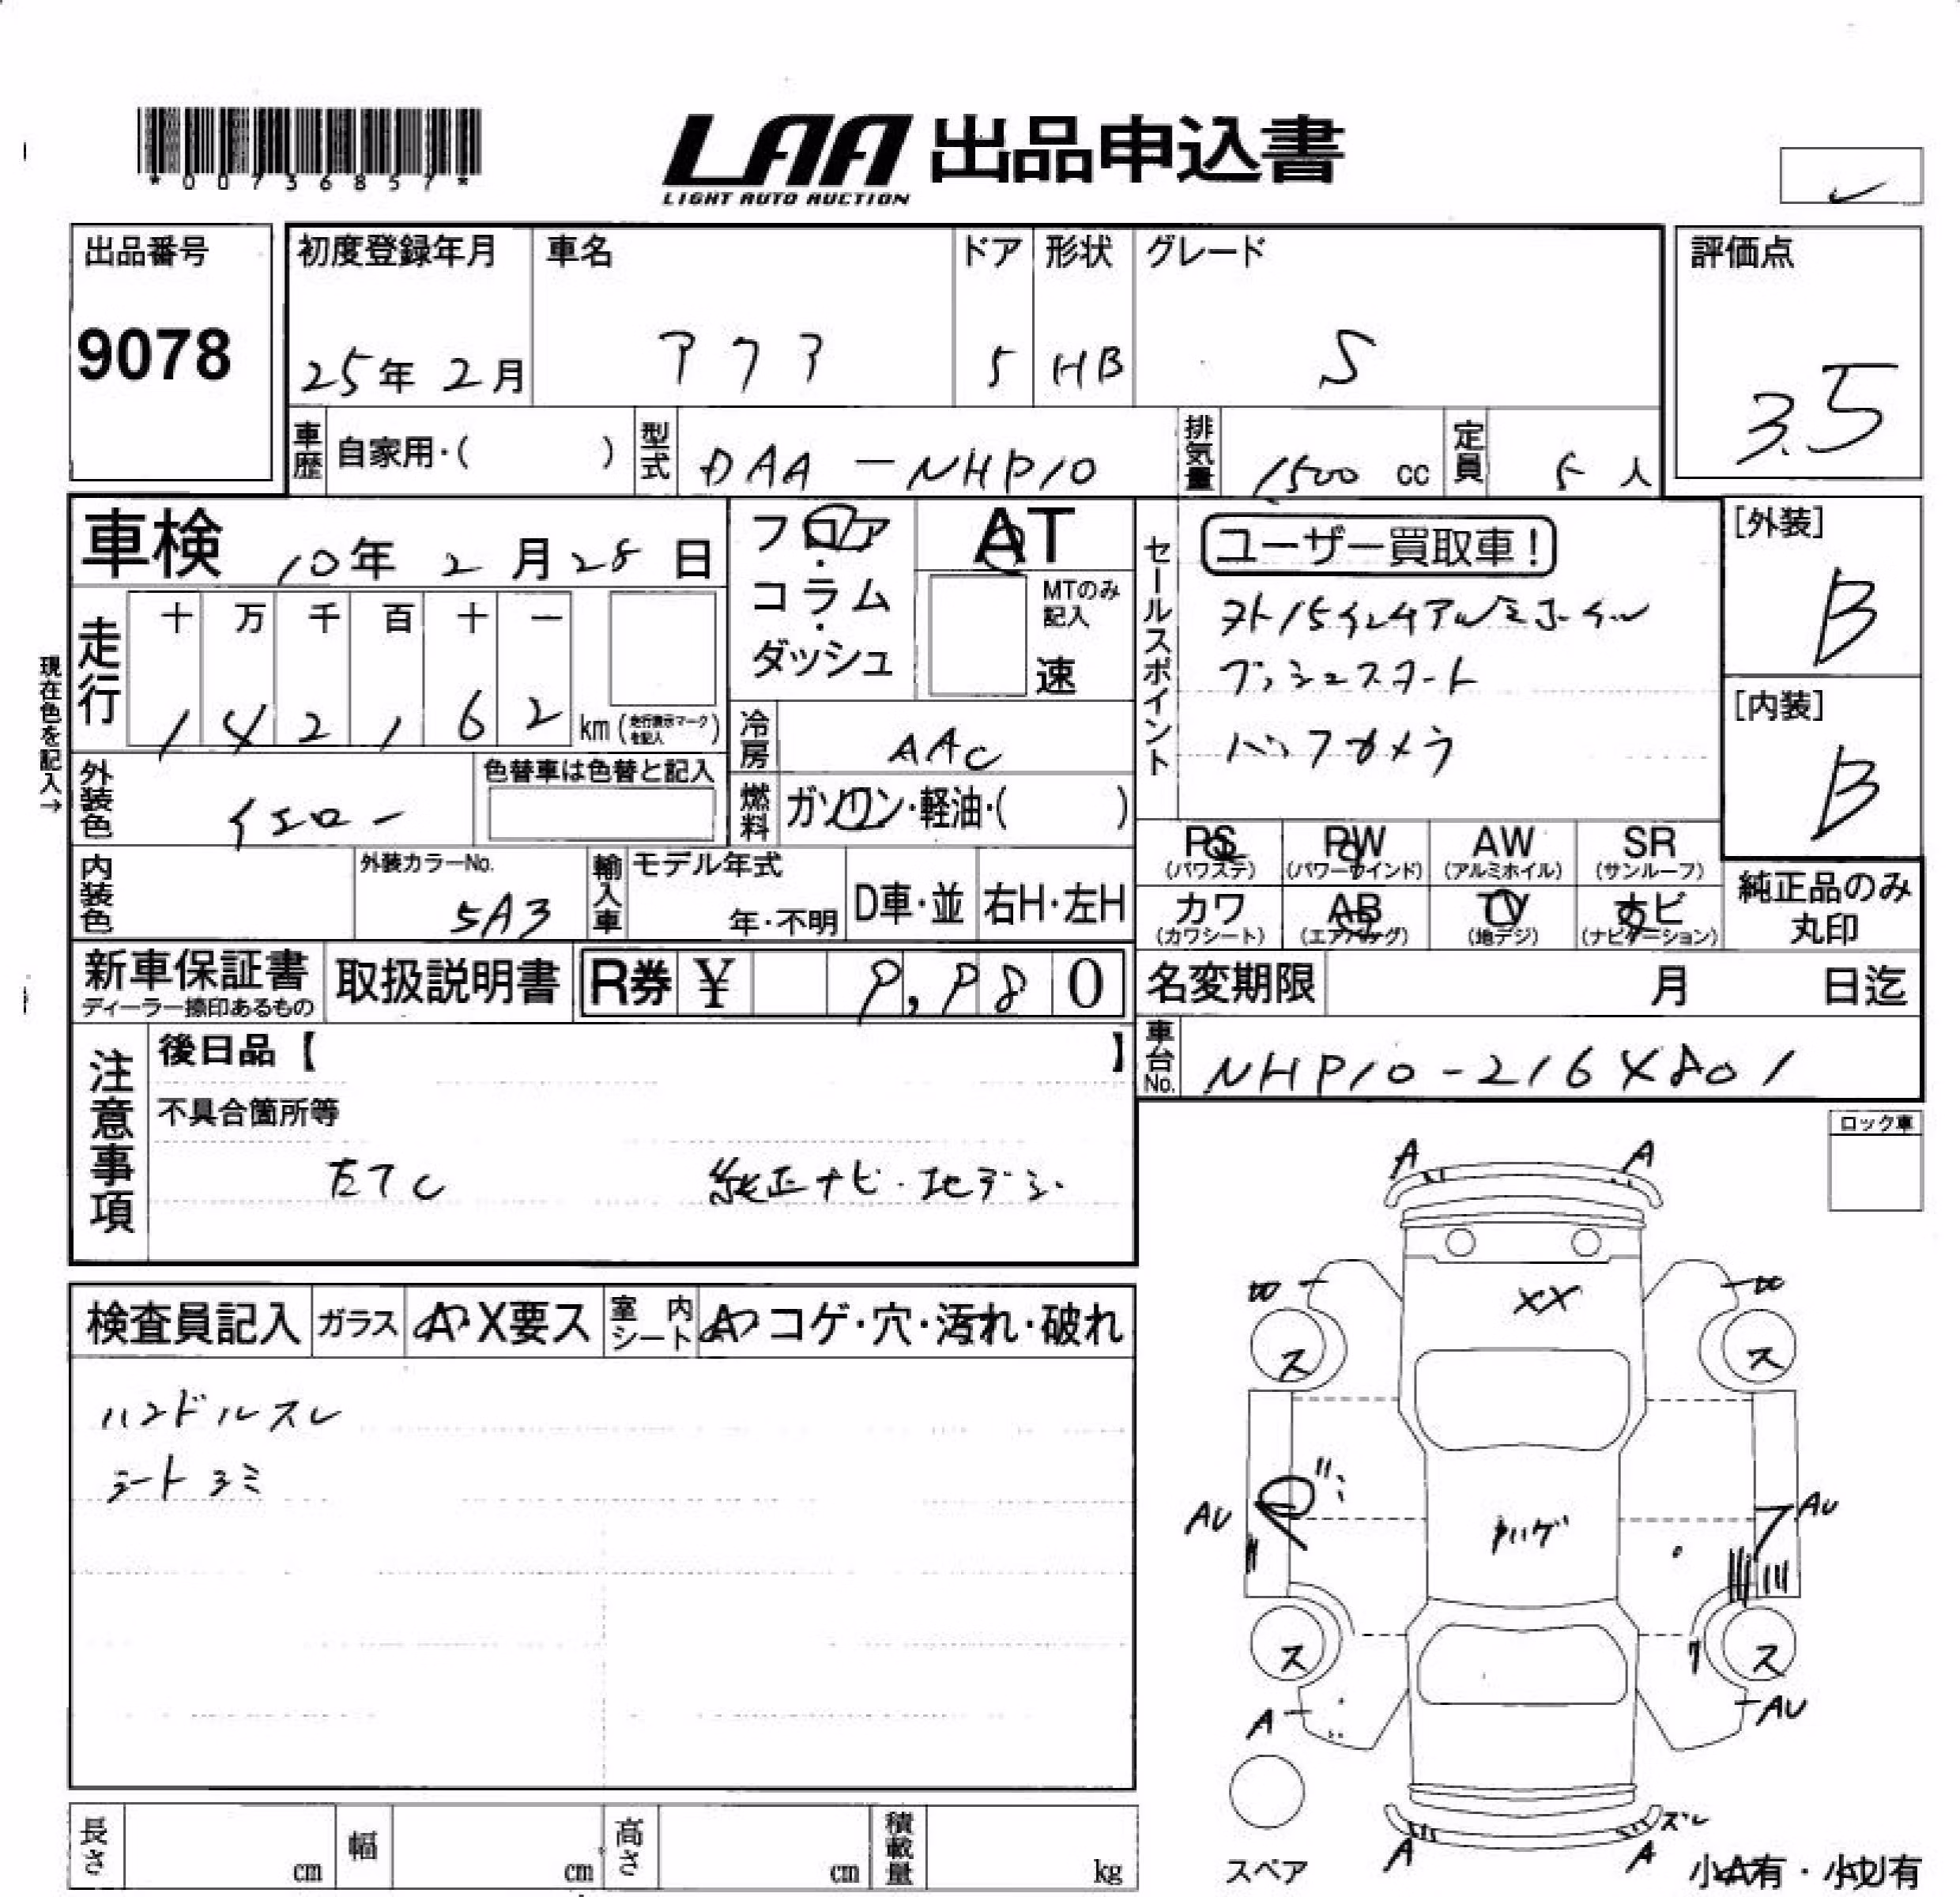 *00736857*
LAA 出品申込書
LIGHT AUTO AUCTION
出品番号
9078
初度登録年月
25年 2月
車名
アクア
ドア
5
形状
HB
グレード
S
評価点
3.5
車歴 自家用・( )
型式 DAA-NHP10
排気量 1500 cc
定員 5 人
車検 10年 2月28日
フロア・コラム・ダッシュ
AT
MTのみ記入
速
セールスポイント
ユーザー買取車!
外15インチアルミホイル
プッシュスタート
バックカメラ
[外装]
B
[内装]
B
現在色を記入→
走行
十 万 千 百 十 一
1 4 2 1 6 2 km (走行表示マークを記入)
冷房 AAC
外装色 イエロー
色替車は色替と記入
燃料 ガソリン・軽油・( )
内装色
外装カラーNo.
5A3
輸入車
モデル年式
年・不明
D車・並
右H・左H
PS (パワステ)
PW (パワーウインド)
AW (アルミホイル)
SR (サンルーフ)
カワ (カワシート)
AB (エアバッグ)
TV (地デジ)
ナビ (ナビゲーション)
純正品のみ丸印
新車保証書
ディーラー捺印あるもの
取扱説明書
R券 ¥ 9,980
名変期限 月 日迄
車台No. NHP10-216X801
注意事項
後日品【 】
不具合箇所等
純正ナビ・地デジ
ロック車
検査員記入
ガラス A・X要ス
室内シート A・コゲ・穴・汚れ・破れ
ハンドルスレ
シートシミ
A A
XX
ス ス
AU AU
ハゲ
ス ス
A AU
ズレ
A A
スペア
小A有・小U有
長さ cm
幅 cm
高さ cm
積載量 kg